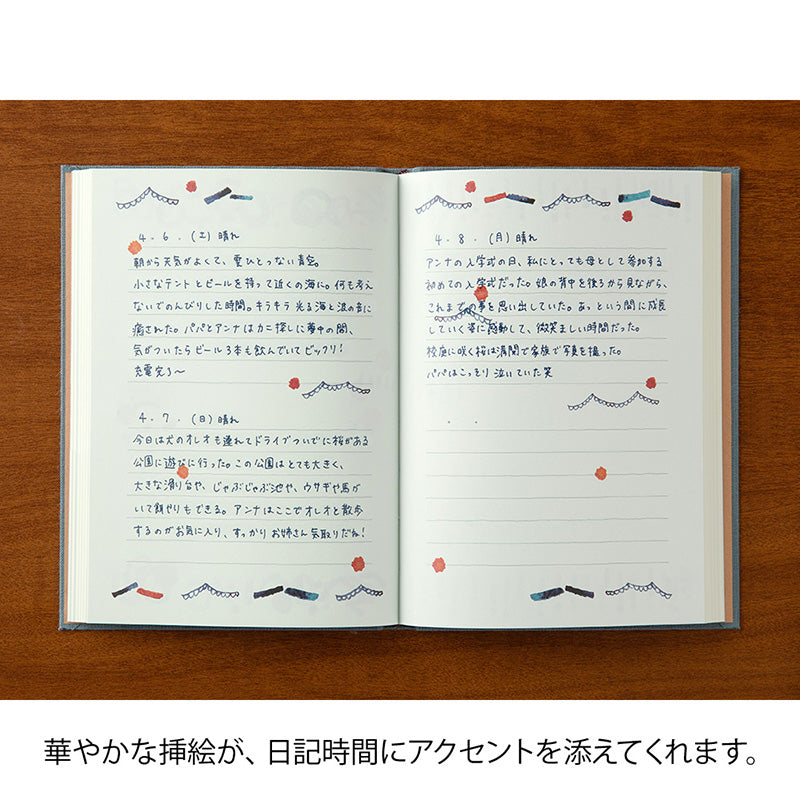 4．6．（土）晴れ
朝から天気がよくて、雲ひとつない青空。
小さなテントとビールを持って近くの海に。何も考え
ないでのんびりした時間。キラキラ光る海と波の音に
癒された。パパとアンナはカニ探しに夢中の間、
気がついたらビール3本も飲んでいてビックリ！
充電完了〜
4．7．（日）晴れ
今日は犬のオレオも連れてドライブついでに桜がある
公園に遊びに行った。この公園はとても大きく、
大きな滑り台や、じゃぶじゃぶ池や、ウサギや馬が
いて餌やりもできる。アンナはここでオレオと散歩
するのがお気に入り、すっかりお姉さん気取りだね！
4．8．（月）晴れ
アンナの入学式の日、私にとっても母として参加する
初めての入学式だった。娘の背中を後ろから見ながら、
これまでの事を思い出していた。あっという間に成長
していく姿に感動して、微笑ましい時間だった。
校庭に咲く桜は満開で家族で写真を撮った。
パパはこっそり泣いていた笑
華やかな挿絵が、日記時間にアクセントを添えてくれます。